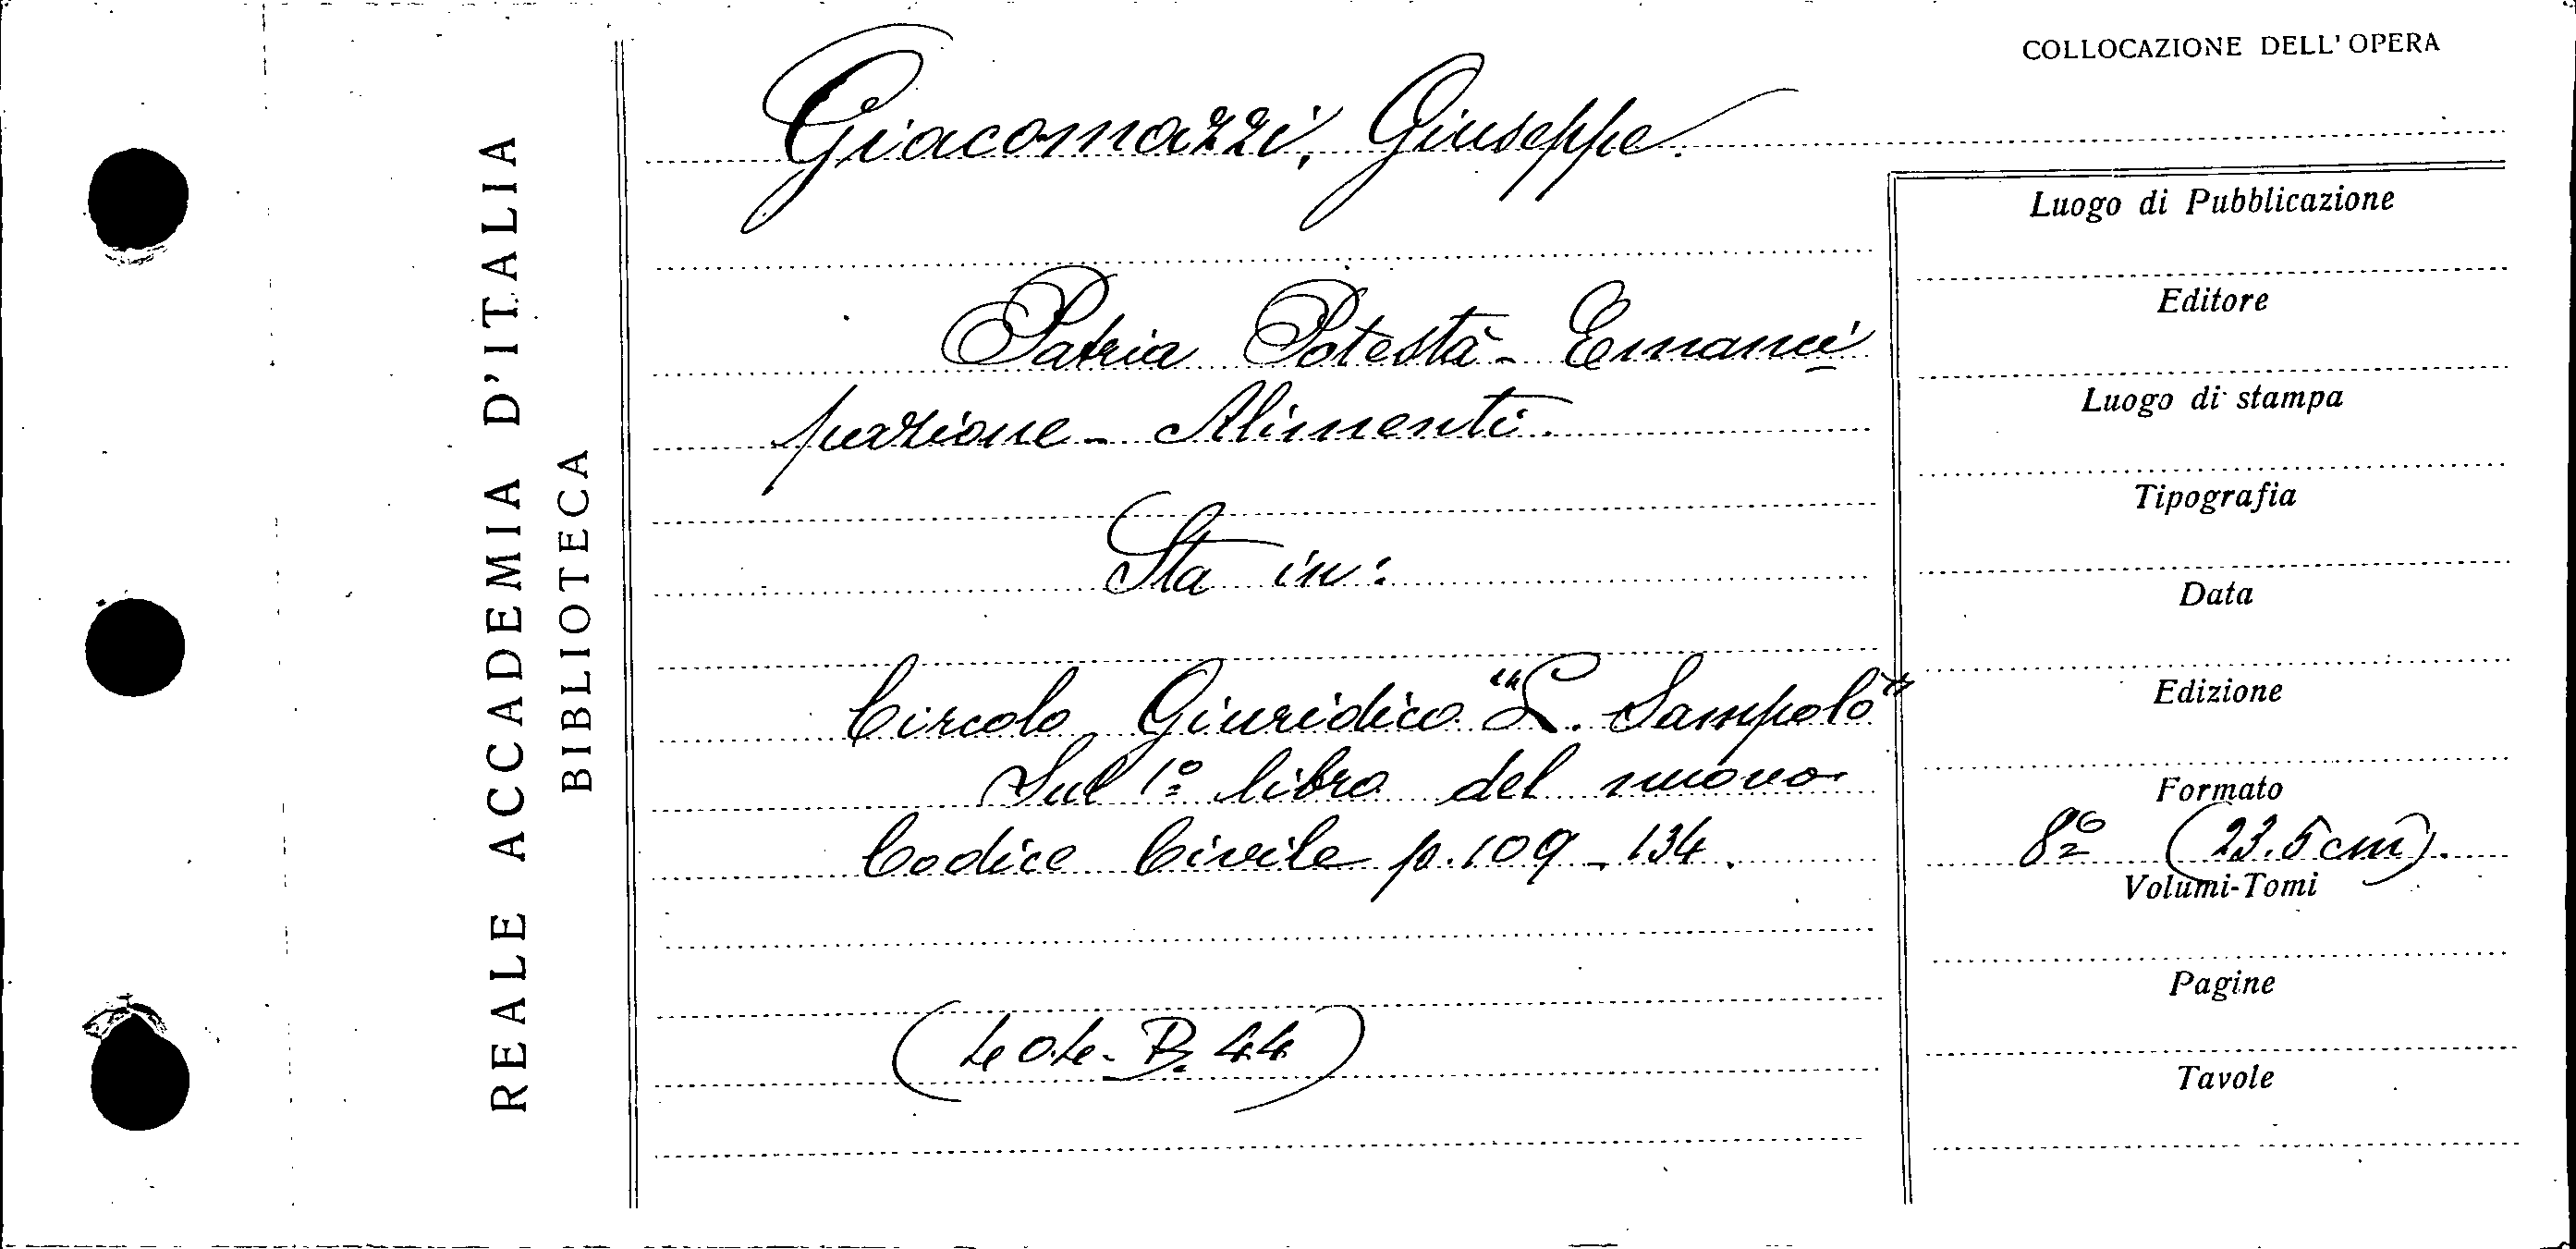 COLLOCAZIONE DELL'OPERA
REALE ACCADEMIA D'ITALIA
BIBLIOTECA
Giacomazzi, Giuseppe.
Patria Potestà - Emanci
pazione - Alimenti.
Sta in:
Circolo Giuridico "L. Sampolo"
Sul 1º libro del nuovo
Codice Civile p. 109 - 134.
B. 44)
Luogo di Pubblicazione
Editore
Luogo di stampa
Tipografia
Data
Edizione
Formato
8º (23.5 cm).
Volumi-Tomi
Pagine
Tavole